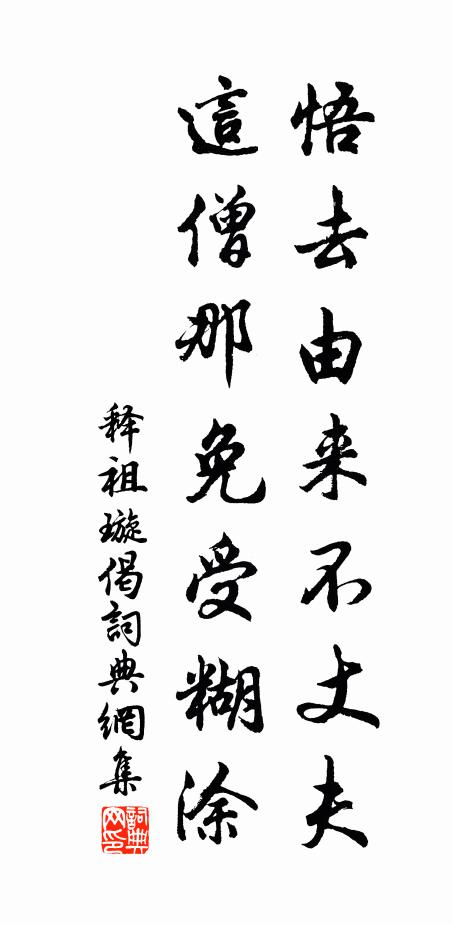 悟去由来不丈夫
這僧那免受糊涂
释祖璇偈詞典網集
詞典網印